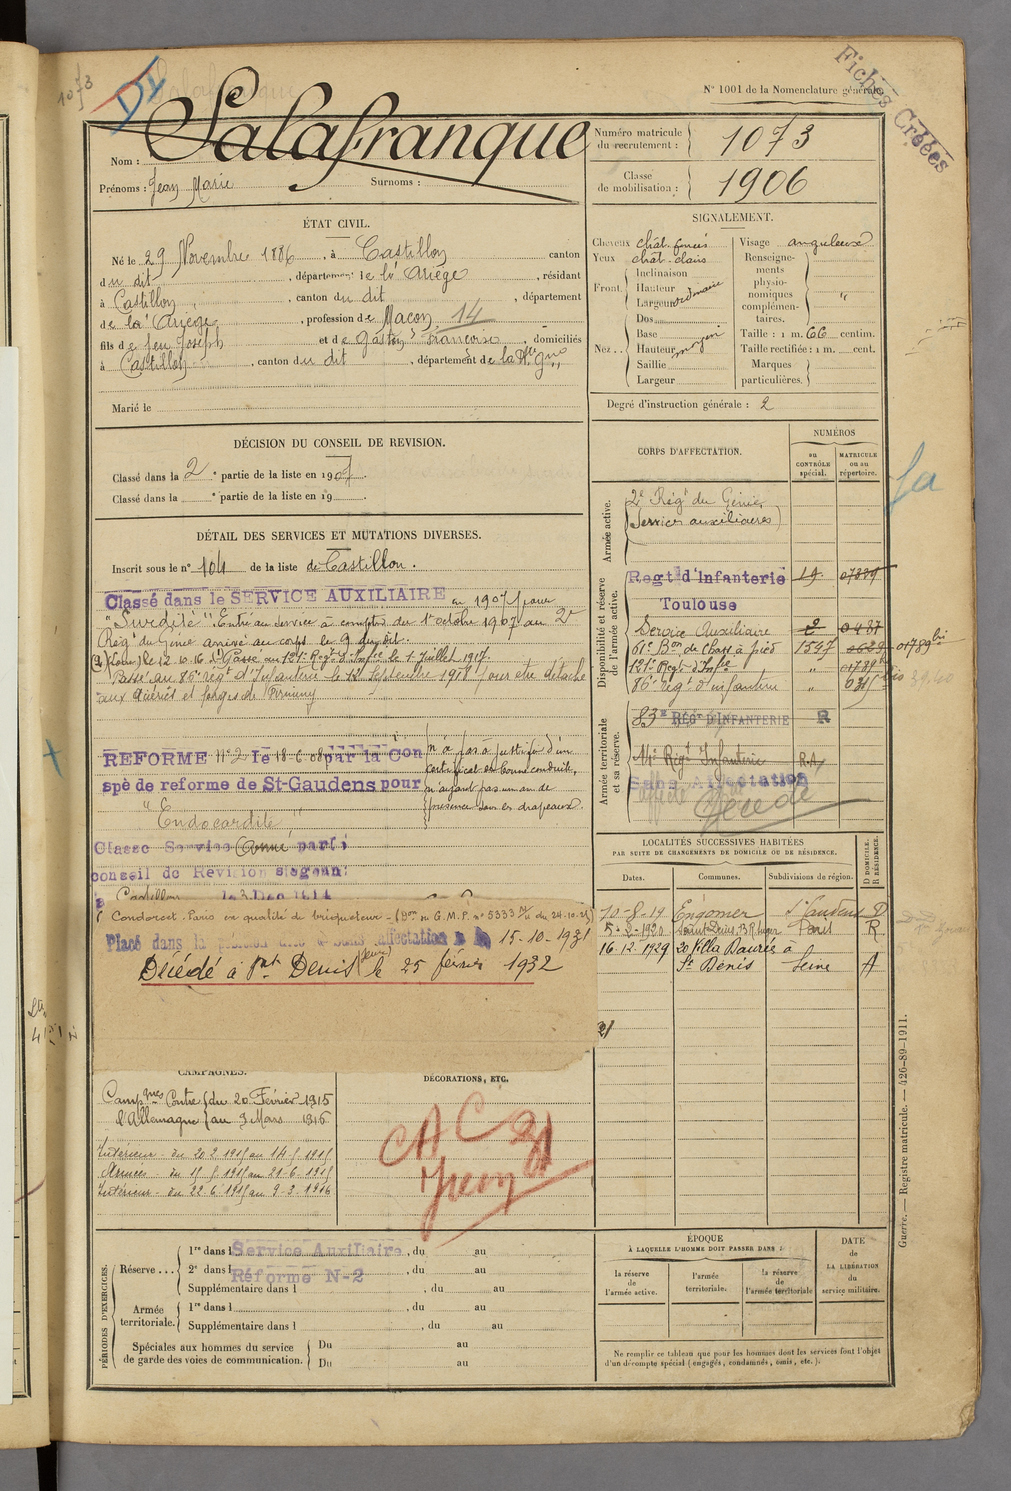 1073
N° 1001 de la Nomenclature générale.
Fiches Créées
Nom : Salafranque
Prénoms : Jean Marie Surnoms :
Numéro matricule du recrutement : 1073
Classe de mobilisation : 1906
ÉTAT CIVIL.
Né le 29 Novembre 1886, à Castillon canton
du dit, département de l'Ariège, résidant
à Castillon, canton du dit, département
de l'Ariège, profession de Maçon 14
fils de feu Joseph et de Gaston Françoise, domiciliés
à Castillon, canton du dit, département de la
Marié le
SIGNALEMENT.
Cheveux chât. foncés
Yeux chât. clairs
Front. Inclinaison
Hauteur
Largeur ordinaire
Nez.. Dos
Base
Hauteur moyen
Saillie
Largeur
Visage anguleux
Renseignements physionomiques complémentaires. "
Taille : 1 m. 66 centim.
Taille rectifiée : 1 m. cent.
Marques particulières.
Degré d'instruction générale : 2
DÉCISION DU CONSEIL DE REVISION.
Classé dans la 2e partie de la liste en 1907.
Classé dans la e partie de la liste en 19 .
DÉTAIL DES SERVICES ET MUTATIONS DIVERSES.
Inscrit sous le n° 104 de la liste de Castillon.
Classé dans le SERVICE AUXILIAIRE en 1907 pour
"Surdité". Entré au service à compter du 1er octobre 1907 au 2e
Rég' du Génie arrivé au corps le 9 du dit.
le 12.10.16. Passé au 121e Regt d'Infie le 1 Juillet 1917.
Passé au 86e régt d'Infanterie le 12 Septembre 1918 pour être détaché
aux Aciéries et forges de Firminy
REFORME N°2 le 18-6-08 par la Com
spè de reforme de St-Gaudens pour
"Endocardite"
n'a pas à justifier d'un
certificat de bonne conduite,
n'ayant pas un an de
présence sous les drapeaux.
Classé Service Armé parti
conseil de Revision siégeant
à Castillon le 3 Dec 1914
Condorcet. Paris en qualité de briqueteur - (Don du G.M.P. n° 5333 du 24.10.25)
Placé dans la position dite de sans affectation le 15-10-1931
Décédé à St Denis (Seine) le 25 février 1932
CORPS D'AFFECTATION.
NUMÉROS
au CONTRÔLE spécial.
MATRICULE ou au répertoire.
Armée active.
2e Régt du Génie
(Services auxiliaires)
Disponibilité et réserve de l'armée active.
Regt d'Infanterie 19
Toulouse
Service Auxiliaire 2 0487
61e Bon de Chass à pied 1547
121e Regt d'Infie " 01789 bis
86e régt d'infanterie "
Armée territoriale et sa réserve.
83e RÉGT D'INFANTERIE R
14e Régt Infanterie R.A.
Sans Affectation
Décédé
LOCALITÉS SUCCESSIVES HABITÉES
PAR SUITE DE CHANGEMENTS DE DOMICILE OU DE RÉSIDENCE.
Dates. Communes. Subdivisions de région. D DOMICILE. R RÉSIDENCE.
10-8-19 Engomer St Gaudens D
5-2-1920 Saint-Denis Paris R
16-12-1929 20 Villa Baurès à
St Denis Seine
CAMPAGNES.
Campgnes Contre l'Allemagne du 20 Février 1915
au 9 Mars 1916
Intérieur du 20 2 1915 au 14 5 1915
Armées du 15 5 1915 au 21-6-1915
Intérieur du 22 6 1915 au 9-3-1916
DÉCORATIONS, ETC.
PÉRIODES D'EXERCICES.
Réserve... 1re dans l Service Auxiliaire, du au
2e dans l Réforme N-2, du au
Supplémentaire dans l , du au
Armée territoriale. 1re dans l , du au
Supplémentaire dans l , du au
Spéciales aux hommes du service de garde des voies de communication. Du au
Du au
ÉPOQUE
À LAQUELLE L'HOMME DOIT PASSER DANS :
la réserve de l'armée active.
l'armée territoriale.
la réserve de l'armée territoriale
DATE de LA LIBÉRATION du service militaire.
Ne remplir ce tableau que pour les hommes dont les services font l'objet
d'un décompte spécial (engagés, condamnés, omis, etc.).
Guerre. — Registre matricule. — 426-89-1911.